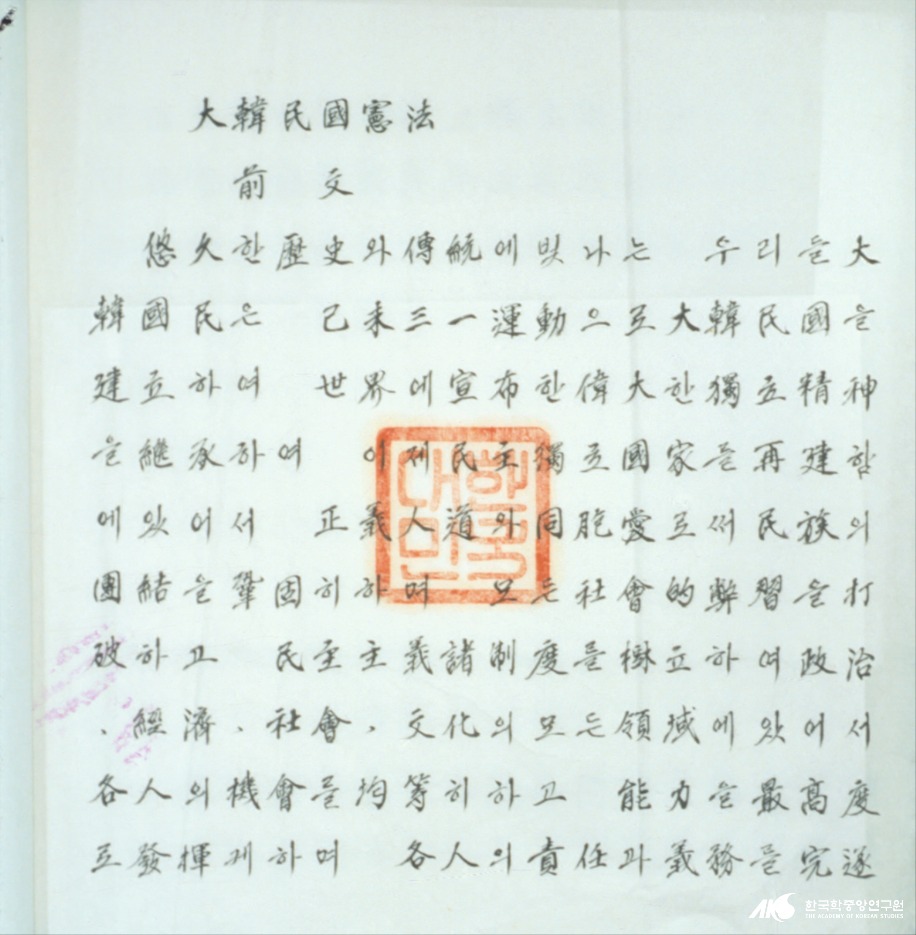 大韓民國憲法
前 文
悠久한歷史와傳統에빛나는 우리들大
韓國民은 己未三一運動으로大韓民國을
建立하여 世界에宣布한偉大한獨立精神
을繼承하여 이제民主獨立國家를再建함
에있어서 正義人道와同胞愛로써民族의
團結을鞏固히하며 모든社會的弊習을打
破하고 民主主義諸制度를樹立하여政治
、經濟、社會、文化의모든領域에있어서
各人의機會를均等히하고 能力을最高度
로發揮케하며 各人의責任과義務를完遂
대한
민국
AKS 한국학중앙연구원
THE ACADEMY OF KOREAN STUDIES